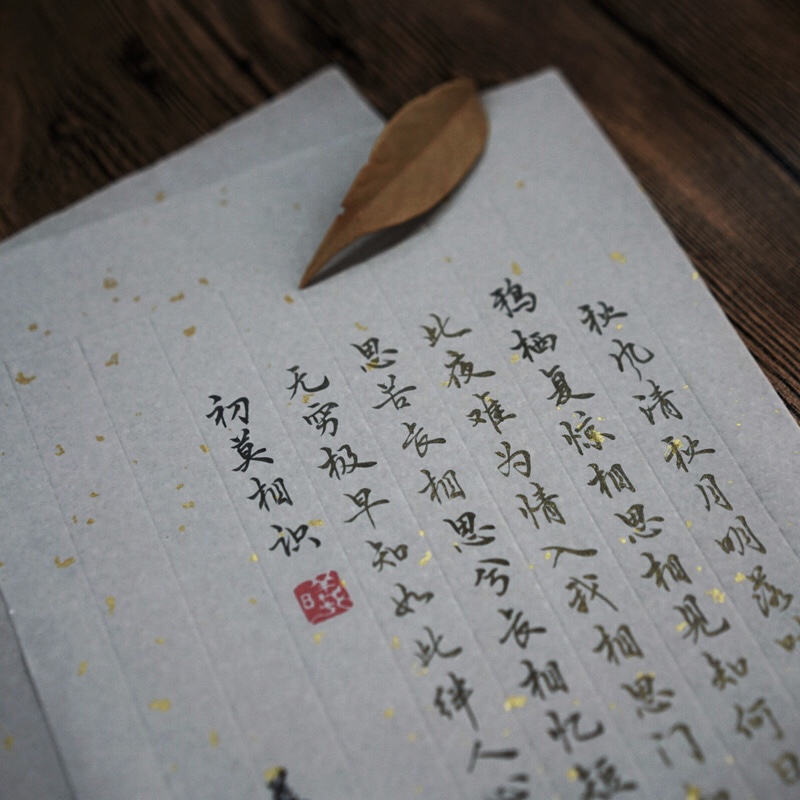 秋风清秋月明落叶
鸦栖复惊相思相见知何日
此夜难为情入我相思门
思苦长相思兮长相忆短
无穷极早知如此绊人心
初莫相识